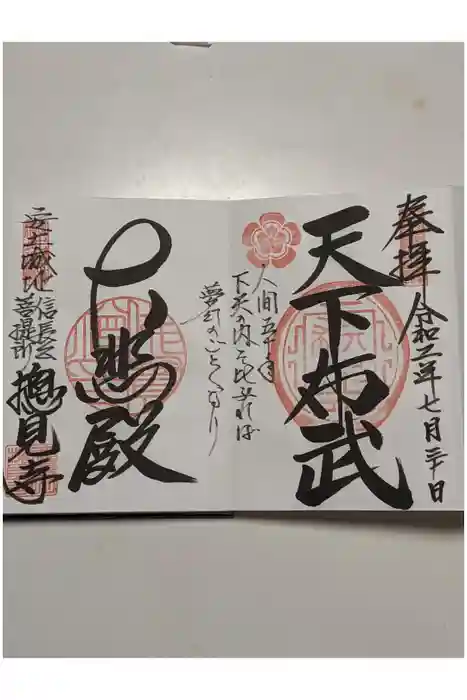 奉拝
令和二年七月三十日
天下布武
人間五十年
下天の内を比ぶれば
夢幻のごとくなり
大悲殿
安土城址
信長公
菩提所
摠見寺